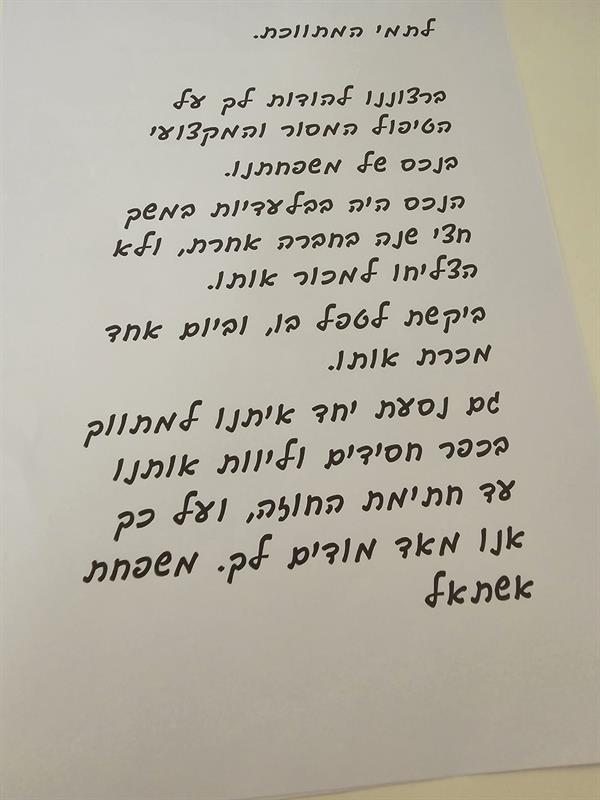 לתמי המתווכת.
ברצוננו להודות לך על
הטיפול המסור והמקצועי
בנכס של משפחתנו.
הנכס היה בבלעדיות במשך
חצי שנה בחברה אחרת, ולא
הצליחו למכור אותו.
ביקשת לטפל בו, וביום אחד
מכרת אותו.
גם נסעת יחד איתנו למתווך
בכפר חסידים וליוות אותנו
עד חתימת החוזה, ועל כך
אנו מאד מודים לך. משפחת
אשתאל